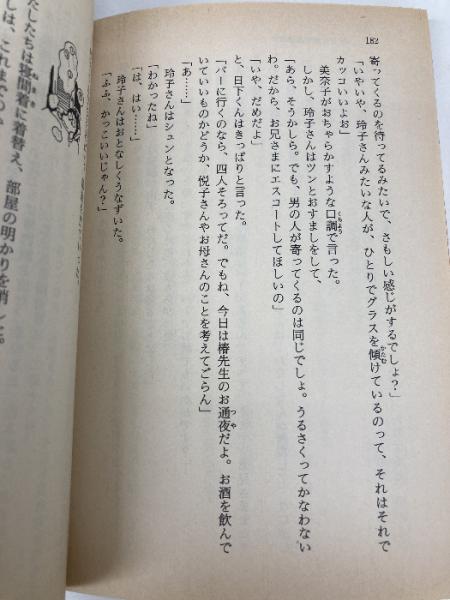 182
寄ってくるのを待ってるみたいで、さもしい感じがするでしょ?」
「いやいや、玲子さんみたいな人が、ひとりでグラスを傾けているのって、それはそれで
カッコいいよお」
美奈子がおちゃらかすような口調で言った。
しかし、玲子さんはツンとおすましをして、
「あら、そうかしら。でも、男の人が寄ってくるのは同じでしょ。うるさくってかなわない
わ。だから、お兄さまにエスコートしてほしいの」
「いや、だめだよ」
と、日下くんはきっぱりと言った。
「バーに行くのなら、四人そろってだ。でもね、今日は椿先生のお通夜だよ。お酒を飲んで
いていいものかどうか、悦子さんやお母さんのことを考えてごらん」
「あ……」
玲子さんはシュンとなった。
「わかったね」
「は、はい……」
玲子さんはおとなしくうなずいた。
「ふふ、かっこいいじゃん?」
たしたちは寝間着に着替え、部屋の明かりを消した。
しは、これまでのか